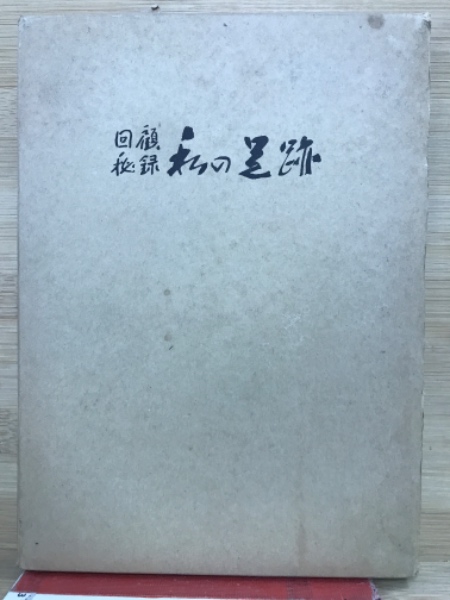 回顧秘録 私の足跡